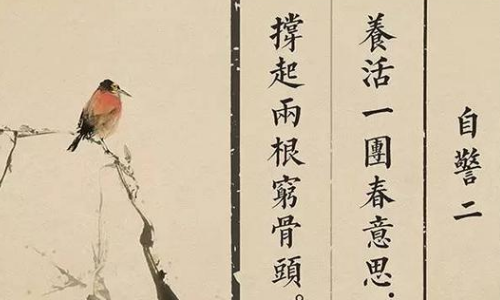 自警二
養活一團春意思，
撐起兩根窮骨頭。